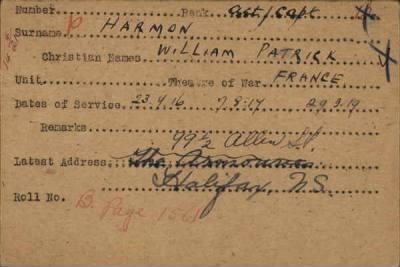 Number............Rank...Act/Capt...X
Surname...HARMON
Christian Names...WILLIAM PATRICK...X
Unit............Theatre of War...FRANCE
Dates of Service...23.9.16 7.8.17 29.3.19
Remarks
99½ Allen St.
Latest Address...The Armouries
Halifax, N.S.
Roll No. B. Page 156